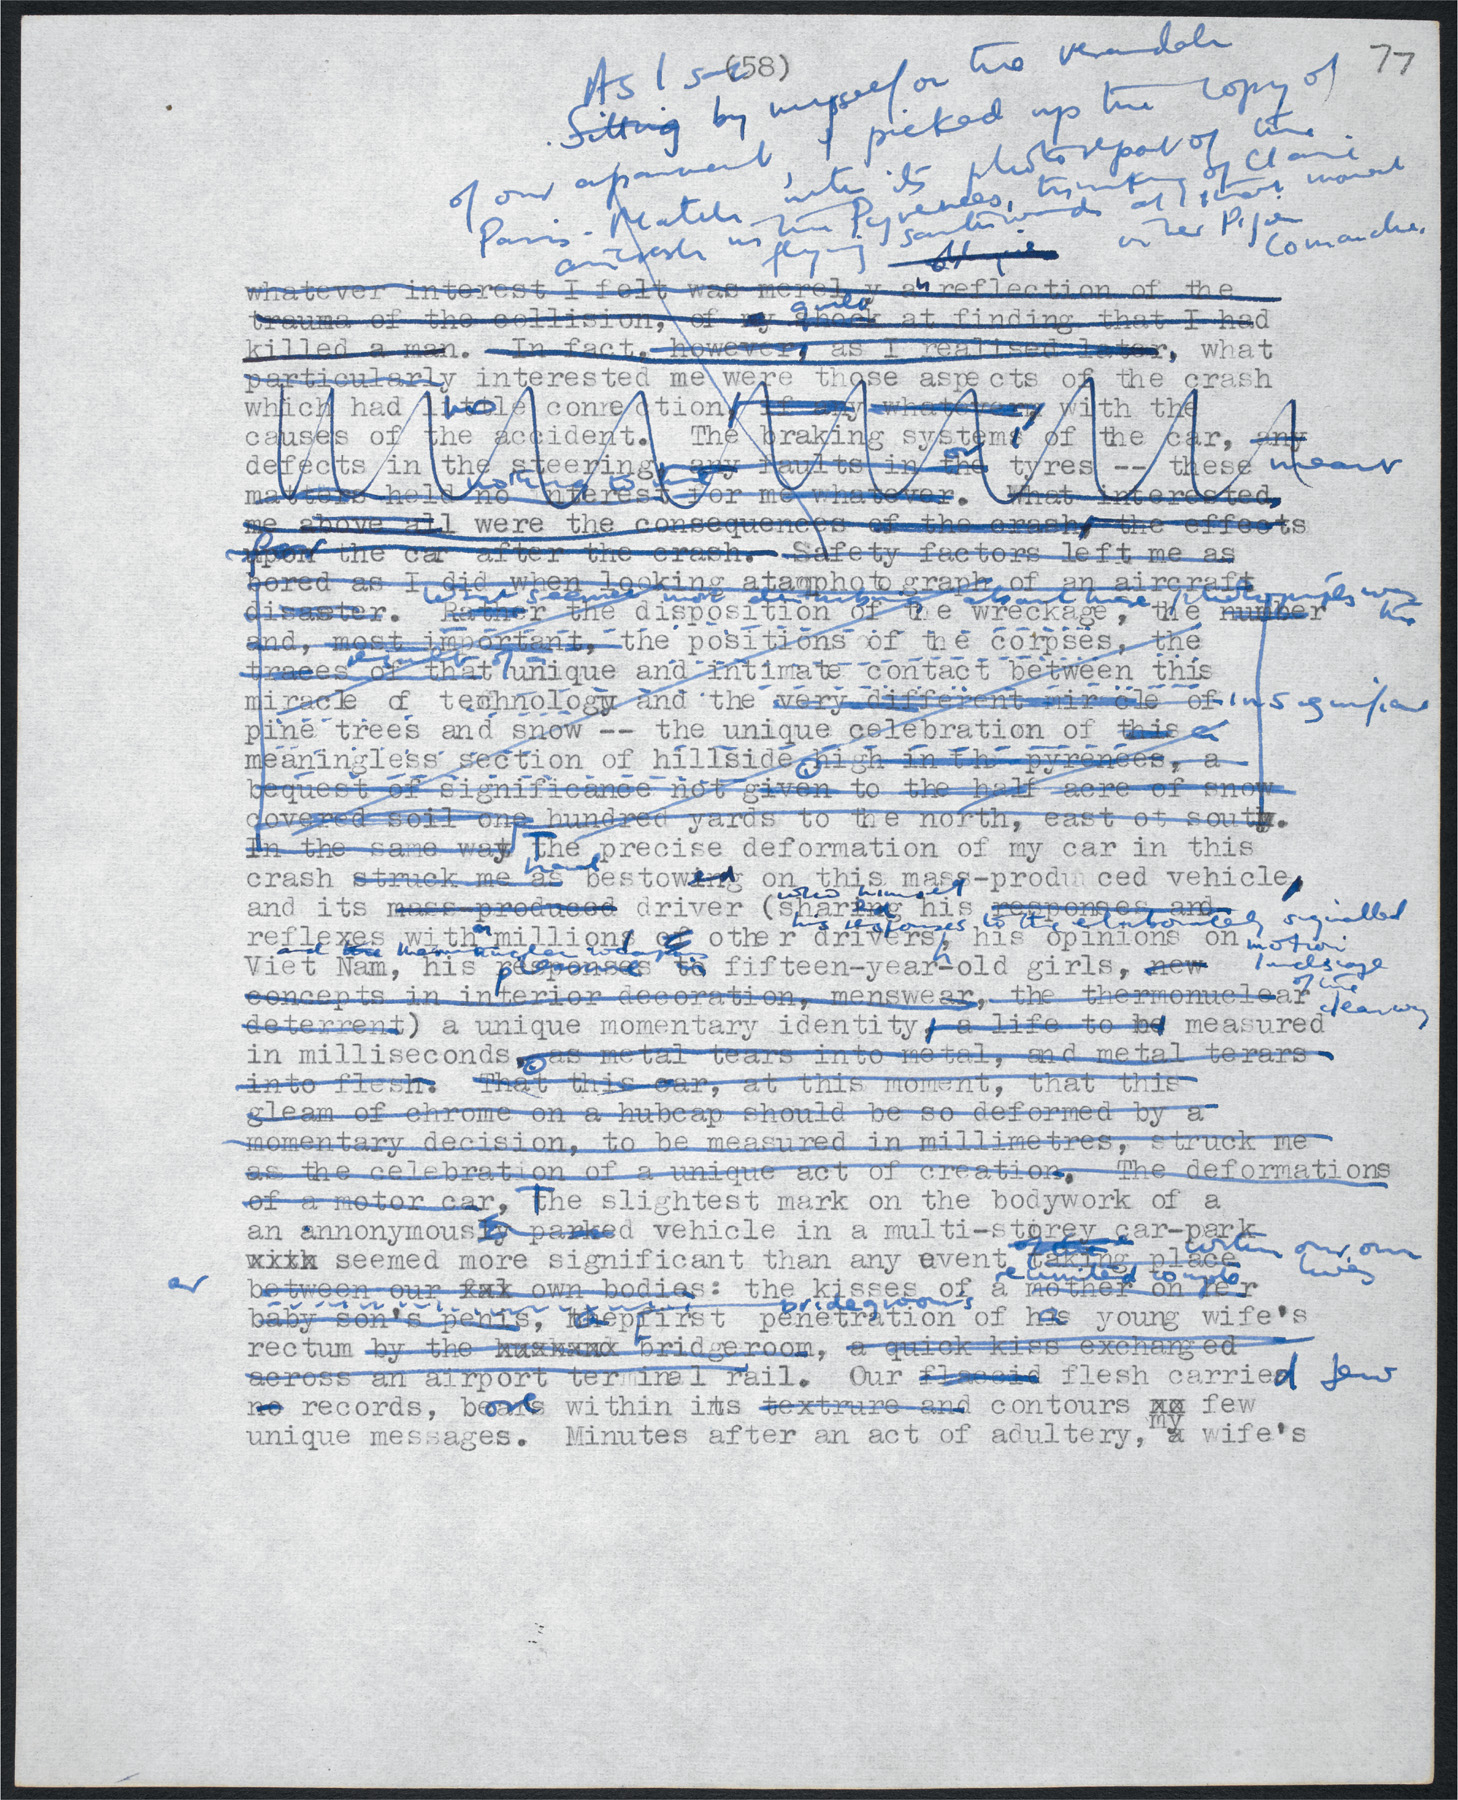 77
(58)
As I sat
Sitting by myself on the verandah
of our apartment I picked up the copy of
Paris-Match, with its photo report of the
aircrash in the Pyrenees, thinking of Claire
flying southwards at that moment
in her Piper Comanche.
whatever interest I felt was merely a reflection of the
guilt
trauma of the collision, of my shock at finding that I had
killed a man. In fact, however, as I realised later, what
particularly interested me were those aspects of the crash
which had little connection, if any whatever, with the
no
causes of the accident. The braking systems of the car, any
or
defects in the steering, any faults in the tyres -- these meant
nothing to me
matters held no interest for me whatever. What interested,
me above all were the consequences of the crash, the effects
upon the car after the crash. Safety factors left me as
bored as I did when looking at a photograph of an aircraft
What seemed most disturbing about these photographs was
disaster. Rather the disposition of the wreckage, the number
the
and, most important, the positions of the corpses, the
traces of that unique and intimate contact between this
miracle of technology and the very different miracle of
pine trees and snow -- the unique celebration of this a
meaningless section of hillside high in the pyrenees, a
bequest of significance not given to the half acre of snow
covered soil one hundred yards to the north, east ot south.
In the same way The precise deformation of my car in this
had
crash struck me as bestowing ed on this mass-produ ced vehicle,
who himself
and its mass produced driver (sharing ed his responses and
his responses to the elaborately signalled
reflexes with millions of other drivers, his opinions on
motion
landscape
of the
clearway
Viet Nam, his responses to fifteen-year-old girls, new
concepts in interior decoration, menswear, the thermonuclear
deterrent) a unique momentary identity, a life to be measured
in milliseconds, as metal tears into metal, and metal terars
into flesh. That this car, at this moment, that this
gleam of chrome on a hubcap should be so deformed by a
momentary decision, to be measured in millimetres, struck me
as the celebration of a unique act of creation. The deformations
of a motor car, The slightest mark on the bodywork of a
an annonymously parked vehicle in a multi-storey car-park
within our own
lives
xxxx seemed more significant than any event taking place
or
between our xxx own bodies: the kisses of a mother on her
bridegroom's
baby son's penis, the first penetration of his young wife's
rectum by the xxxxxxx bridgeroom, a quick kiss exchanged
across an airport terminal rail. Our flaccid flesh carried few
no records, bears ore within its textrure and contours xx few
my
unique messages. Minutes after an act of adultery, a wife's